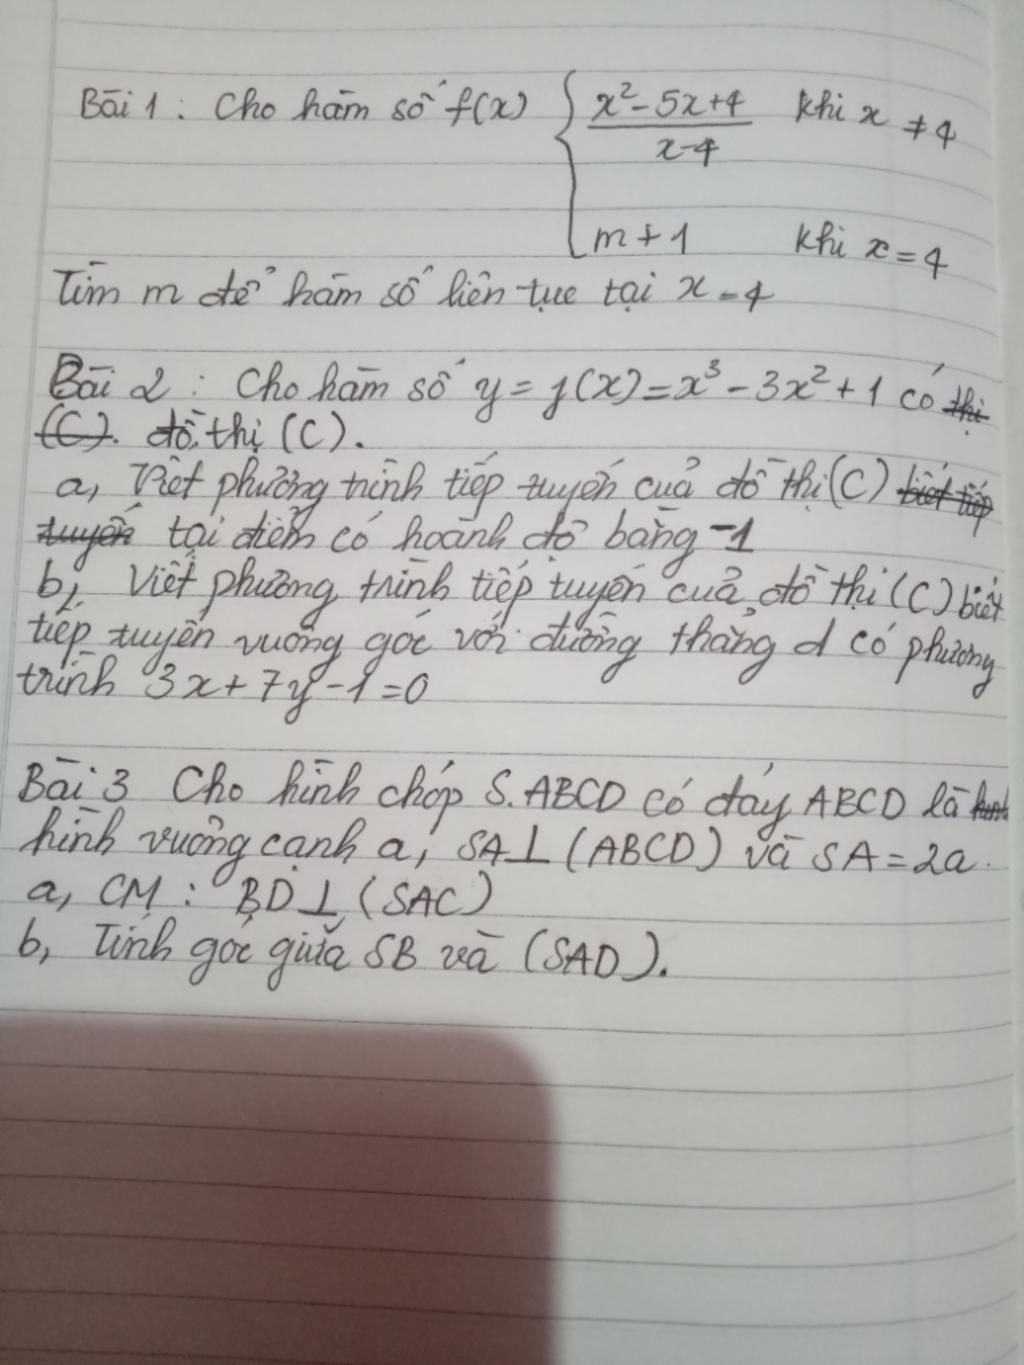 Bài 1 : Cho hàm số f(x) { x² - 5x+4 / x-4 khi x ≠ 4
m + 1 khi x = 4
Tìm m để hàm số liên tục tại x = 4
Bài 2 : Cho hàm số y = f(x) = x³ - 3x² + 1 có thị
(C). đồ thị (C).
a, Viết phương trình tiếp tuyến của đồ thị (C) biết tiếp
tuyến tại điểm có hoành độ bằng -1
b, Viết phương trình tiếp tuyến của đồ thị (C) biết
tiếp tuyến vuông góc với đường thẳng d có phương
trình 3x + 7y - 1 = 0
Bài 3 Cho hình chóp S.ABCD có đáy ABCD là hình
hình vuông cạnh a, SA⊥ (ABCD) và SA = 2a.
a, CM : BD⊥ (SAC)
b, Tính góc giữa SB và (SAD).